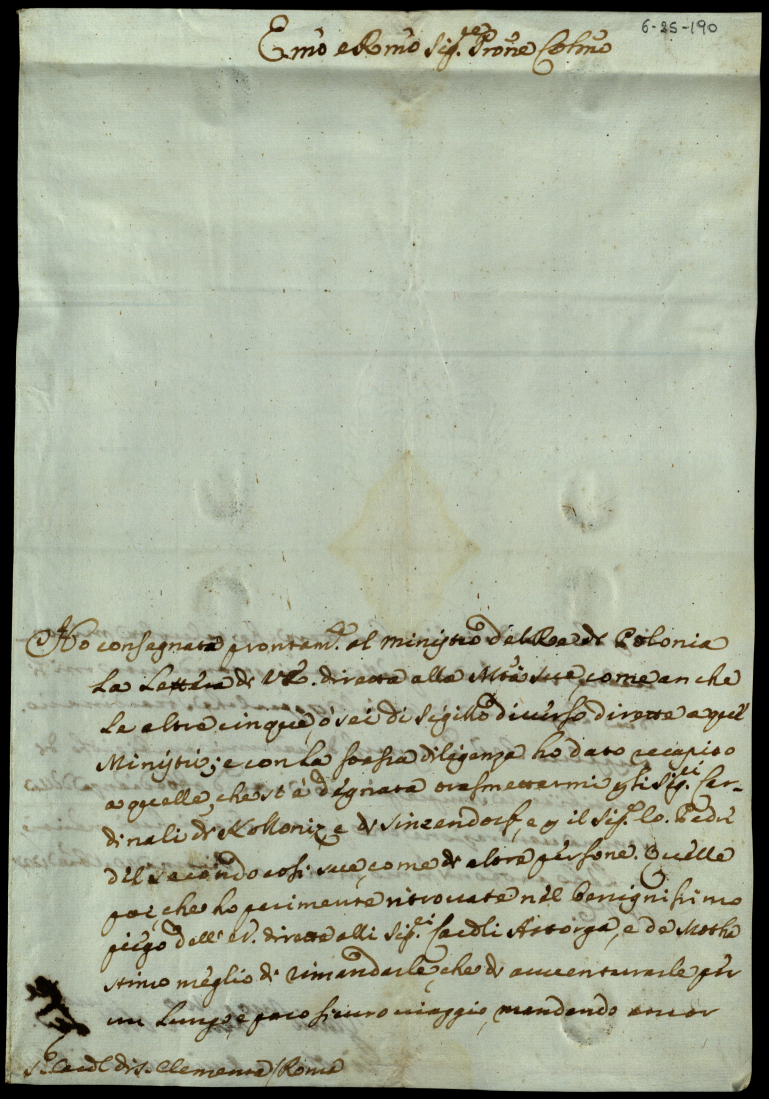 6-25-190
Emo e Rmo Sig.re Prone Colmo
Ho consegnata prontam.te al ministro del Re di Polonia
la Lettera di VE. diretta alla Mtà sua, come anche
le altre cinque, ò sei di sigillo diverso dirette a quei
Ministri; e con la stessa diligenza ho dato recapito
a quelle, che si è degnata trasmettermi p li Sig.ri Car-
dinali di Kollonitz e di Sinzendorf, e p il Sig.
del secondo così sue, come di altre persone. Quelle
poi, che ho parimente ritrovate nel benignissimo
piego dell' EV. dirette alli Sig.ri Cardli Astorga, e de Motha
stimo meglio di rimandarle, che di avventurarle per
un lungo, e poco sicuro viaggio, mandando ancor
S. Cardl di S. Clemente / Roma